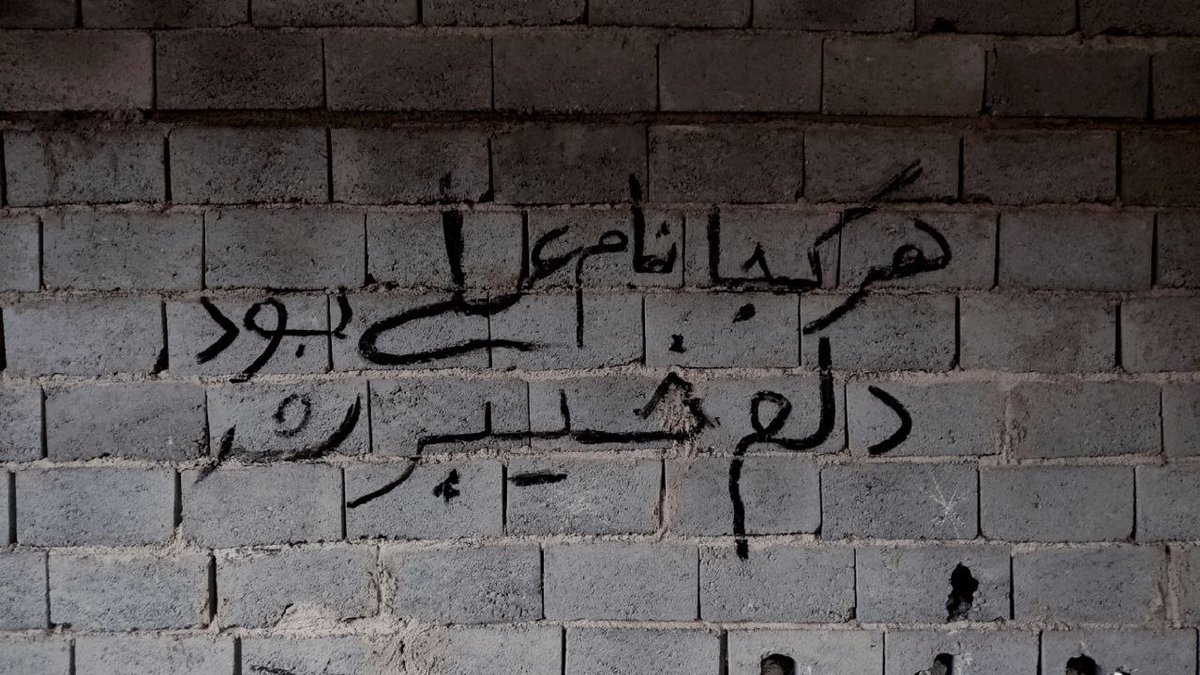 هر کجا نام علی بود
دلم